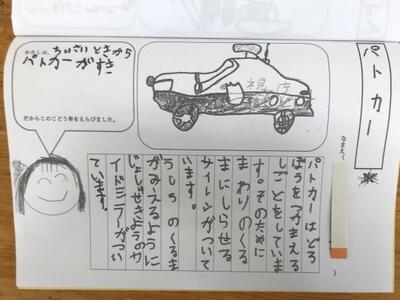 パトカー
なまえ(　)
わたしは、ちいさいときから
パトカーがすき
だからこのじどう車をえらびました。
視庁
パトカーはどろ
ぼうをつかまえる
しごとをしていま
す。そのために
まわりのくる
まにしらせる
サイレンがついて
います。
うしろのくるま
がみえるように
じょしゅせきようのサ
イドミラーがつい
ています。